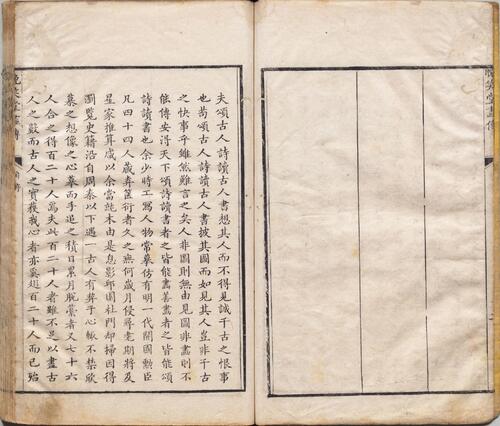 晚笑堂畫傳
夫頌古人詩讀古人書想其人而不得見誠千古之恨事
也苟頌古人詩讀古人書披其圖而如見其人豈非千古
之快事乎雖然難言之矣人非圖則無由見圖非畵則不
能傳安得天下頌詩讀書者之皆能畵善畵者之皆能頌
詩讀書也余少時工寫人物常摹仿有明一代開國勲臣
凡四十四人蔵弆篋衍者久之無何歲月侵尋耄期將及
星家推算歲以余當木由是息影邨園杜門却掃因得
瀏覽史籍沿自周秦以下遇一古人有契于心輙不禁欣
慕之想像之心摹而手追之積日累月脫藁者又七十六
人合之得百二十人焉夫此百二十人者雖不足以盡古
人之數而古人之實獲我心者亦奚翅百二十人而已殆
晚笑堂畫傳